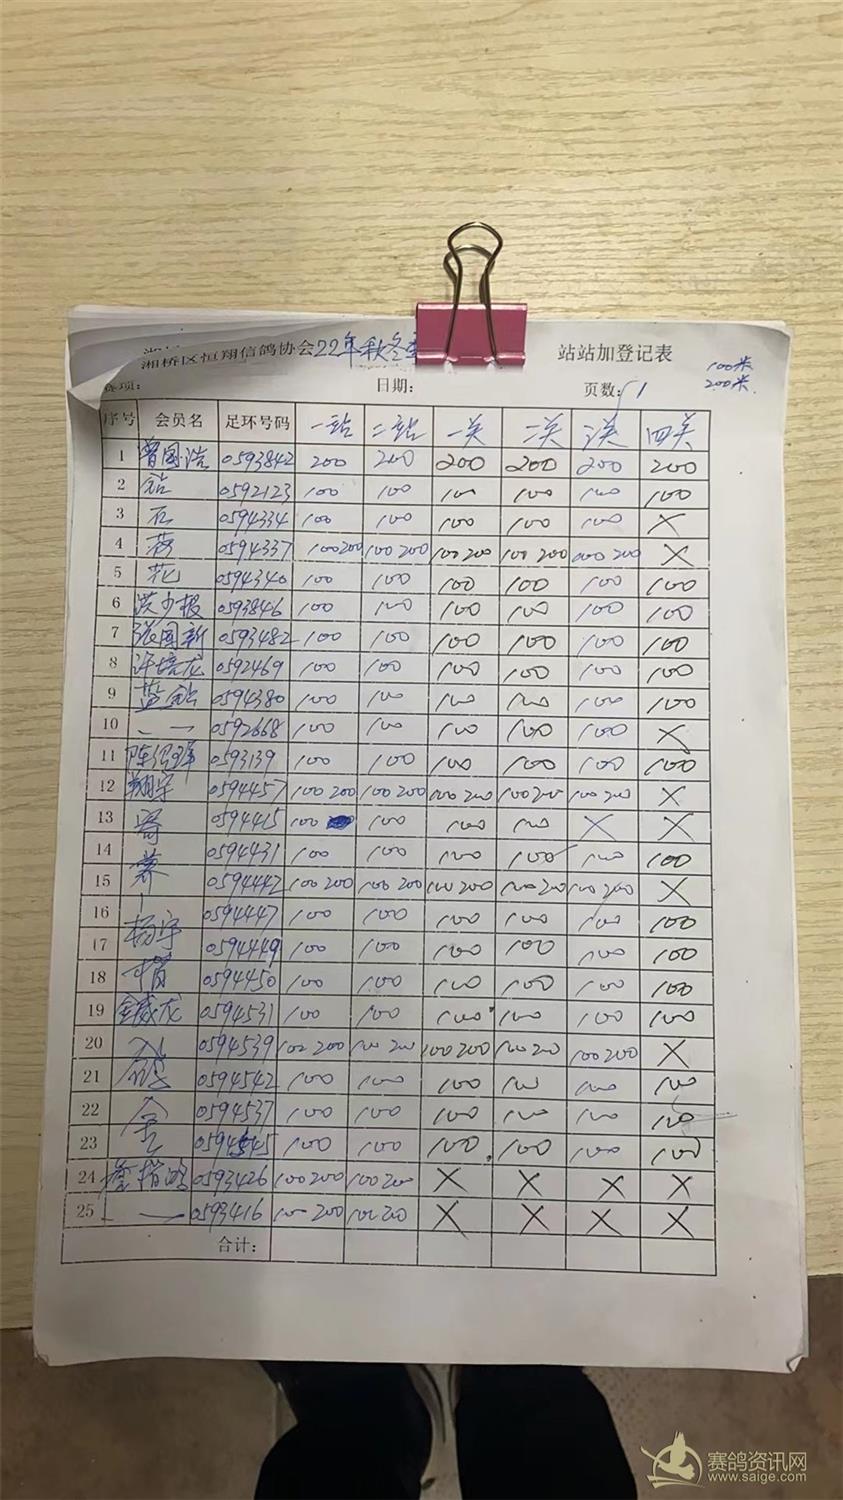 湘桥区恒翔信鸽协会22年秋冬季 站站加登记表
选项: 日期: 页数: 1 100米
200米
序号 会员名 足环号码 一站 二站 一关 二关 三关 四关
1 曾国浩 0593842 200 200 200 200 200 200
2 钻 0592123 100 100 100 100 100 100
3 石 0594334 100 100 100 100 100 X
4 0594337 100 200 100 200 100 200 100 200 100 200 X
5 花 0594340 100 100 100 100 100 100
6 洪少报 0593846 100 100 100 100 100 100
7 张国新 0593482 100 100 100 100 100 100
8 许培龙 0592469 100 100 100 100 100 100
9 蓝钻 0594380 100 100 100 100 100 100
10 0592668 100 100 100 100 100 X
11 0593139 100 100 100 100 100 100
12 翔宇 0594457 100 200 100 200 100 200 100 200 100 200 X
13 0594415 100 100 100 100 X X
14 0594431 100 100 100 100 100 100
15 0594442 100 200 100 200 100 200 100 200 100 200 X
16 0594447 100 100 100 100 100 100
17 杨宇 0594449 100 100 100 100 100 100
18 0594450 100 100 100 100 100 100
19 金威龙 0594531 100 100 100 100 100 100
20 0594539 100 200 100 200 100 200 100 200 100 200 X
21 0594542 100 100 100 100 100 100
22 0594537 100 100 100 100 100 100
23 0594545 100 100 100 100 100 100
24 0593426 100 200 100 200 X X X X
25 0593416 100 200 100 200 X X X X
合计:
赛鸽资讯网
www.saige.com